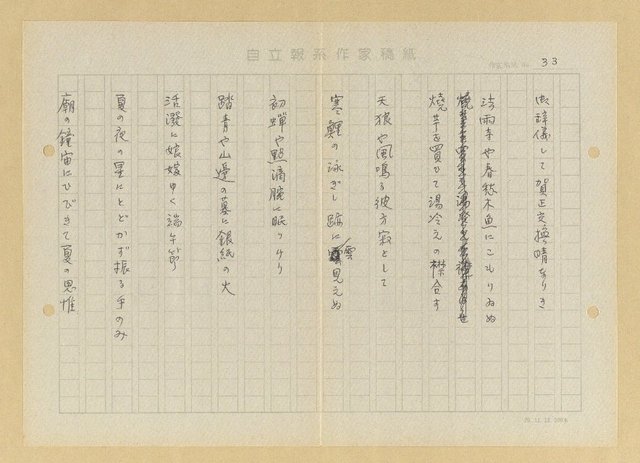 自立報系作家稿紙
33
御辞儀して賀正交換晴ありき
法雨寺や春愁木魚にこもりゐぬ
焼芋を買ひて湯冷えの襟合す
天狼や風鳴る彼方寂として
寒鯉の泳ぎし跡に雲見えぬ
初蝉や點滴腕に眠りけり
踏青や山邊の墓に銀紙の火
活潑に娘嫁ゆく端午節
夏の夜の星にとどかず振る手のみ
廟の鐘宙にひびきて夏の思惟